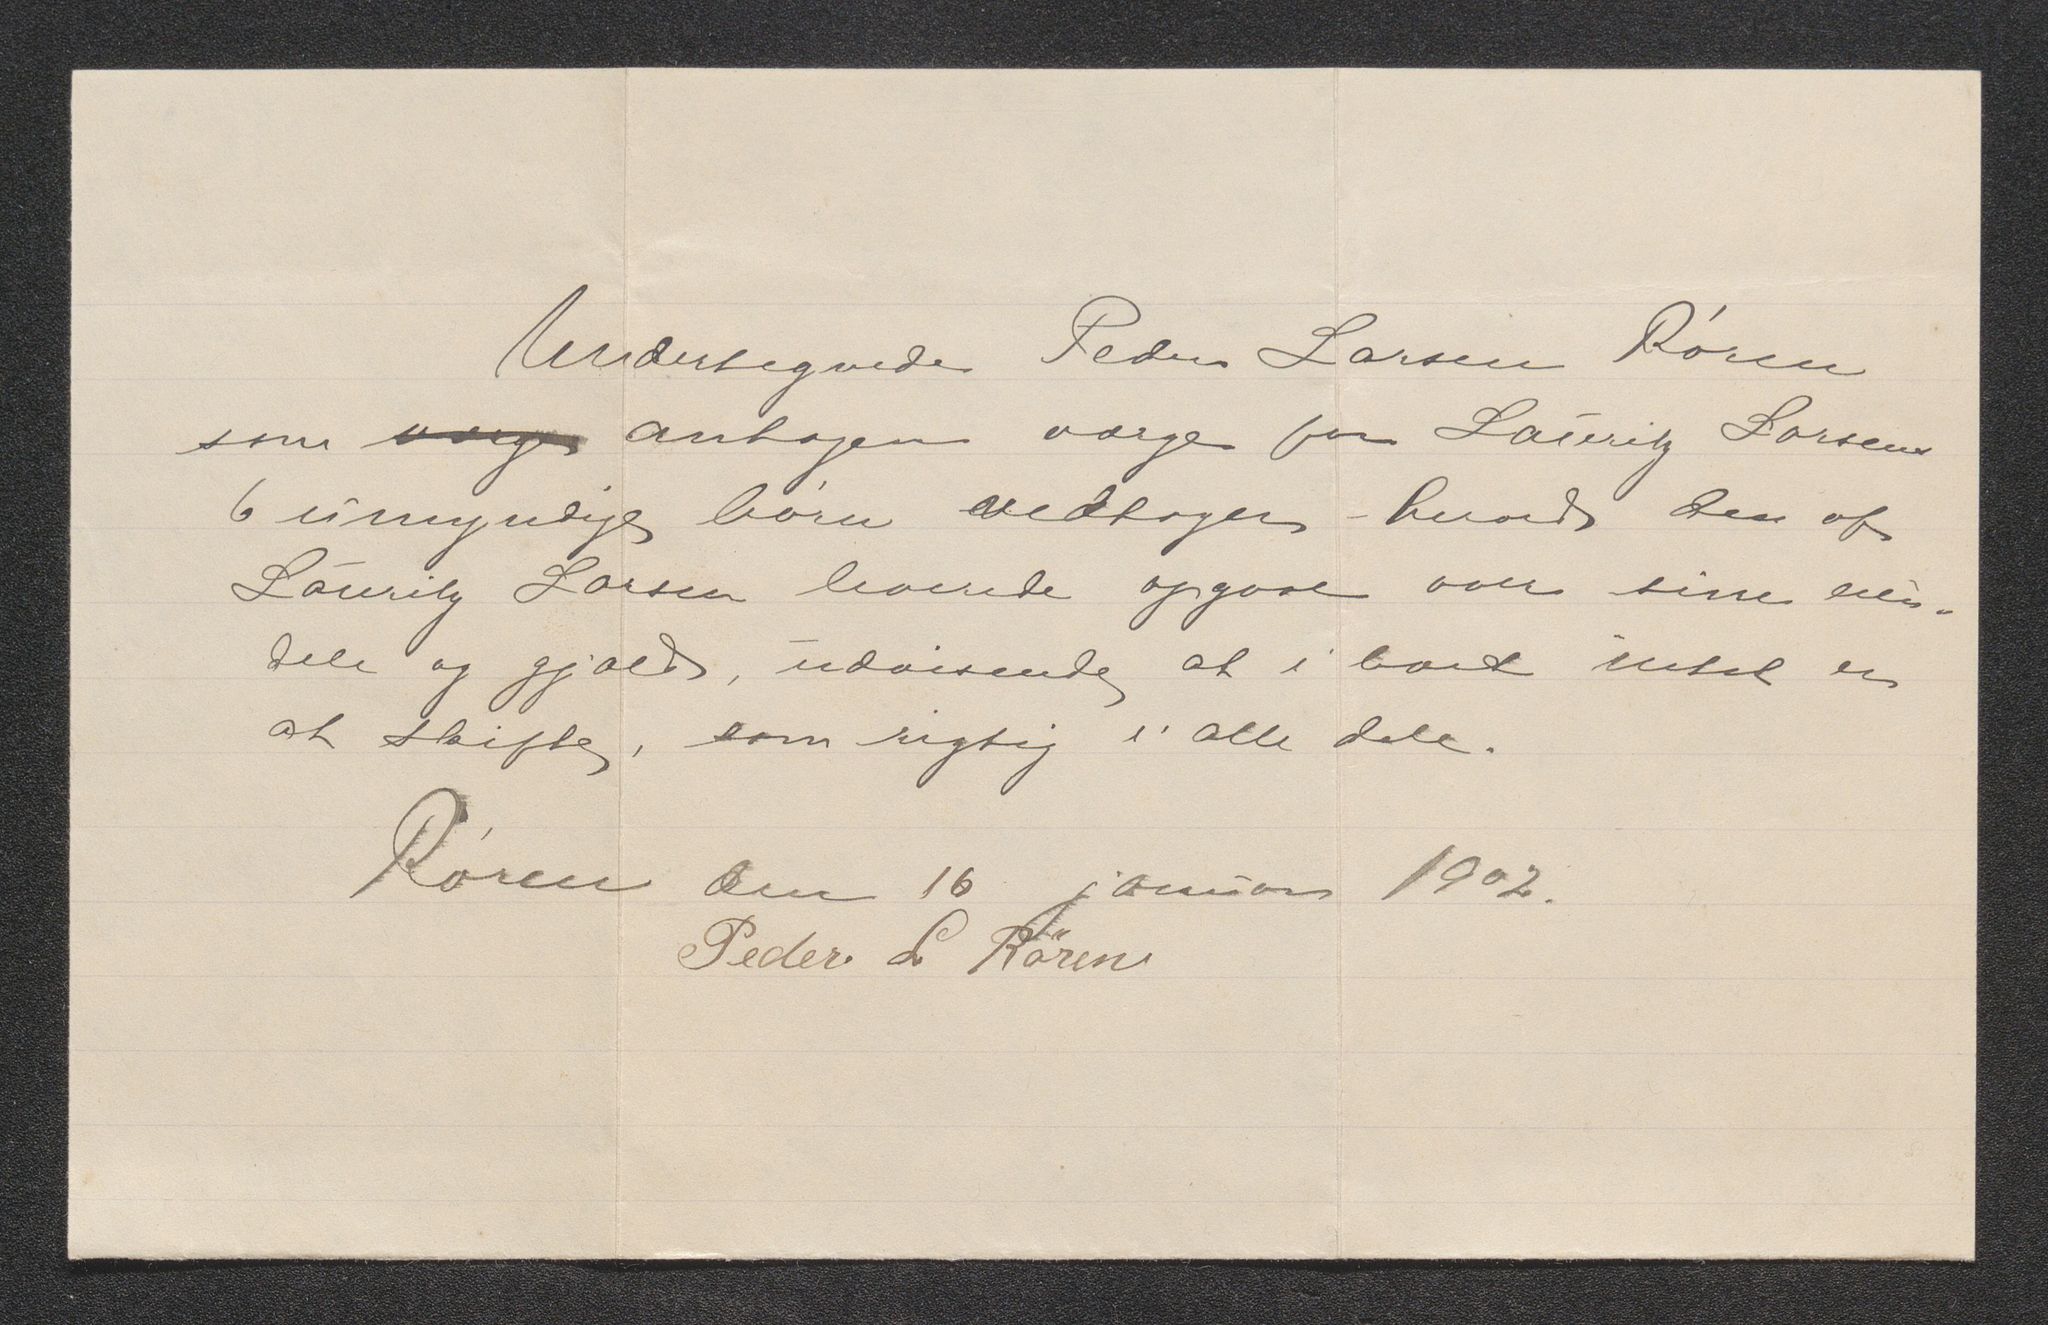 Undertegnede Peder Larsen Røren
som værge antagen værge for Lauritz Larsens
6 umyndige børn vedtager herved den af
Lauritz Larsen leverede opgave over sine eien-
dele og gjæld, udvisende at i boet intet er
at skifte, som rigtig i alle dele.
Røren den 16 januar 1902.
Peder L Røren